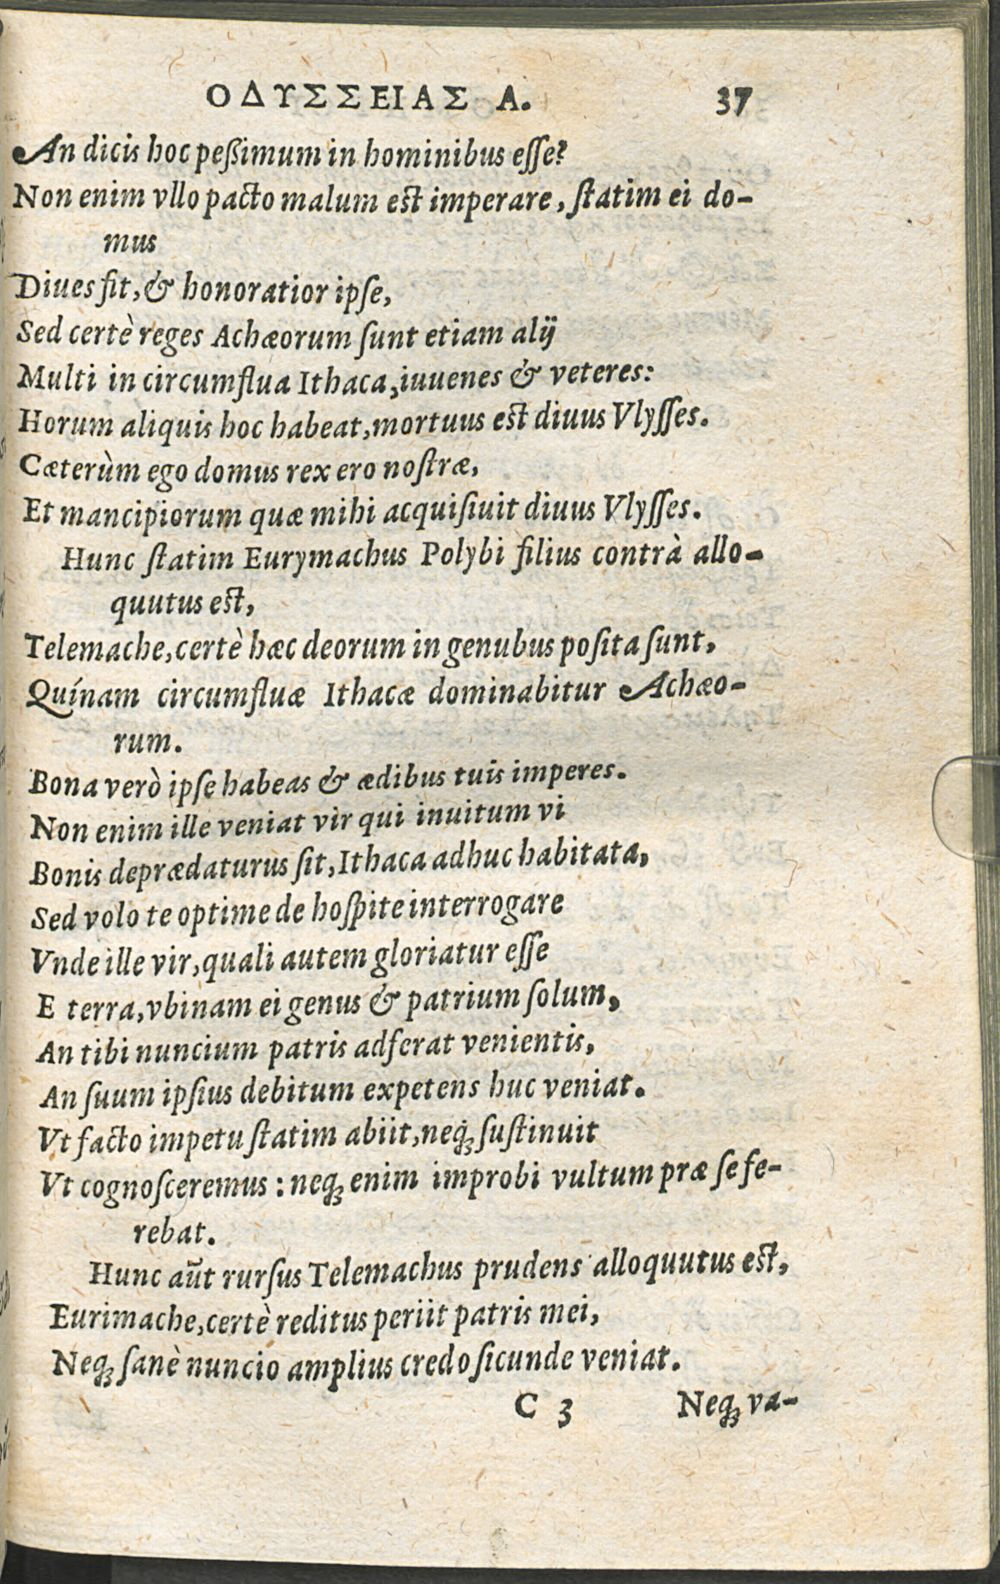 ΟΔΥΣΣΕΙΑΣ Α. 37
An dicis hoc peßimum in hominibus eſſe?
Non enim vllo pacto malum est imperare, ſtatim ei do-
mus
Diues fit, & honoratior ipſe,
Sed certè reges Achæorum ſunt etiam alij
Multi in circumflua Ithaca, iuuenes & veteres:
Horum aliquis hoc habeat, mortuus est diuus Vlyſſes.
Cæterùm ego domus rex ero noſtræ,
Et mancipiorum quæ mihi acquiſiuit diuus Vlyſſes.
Hunc ſtatim Eurymachus Polybi filius contrà allo-
quutus est,
Telemache, certè hæc deorum in genubus poſita ſunt,
Quínam circumfluæ Ithacæ dominabitur Achæo-
rum.
Bona verò ipſe habeas & ædibus tuis imperes.
Non enim ille veniat vir qui inuitum vi
Bonis deprædaturus ſit, Ithaca adhuc habitata,
Sed volo te optime de hoſpite interrogare
Vnde ille vir, quali autem gloriatur eſſe
E terra, vbinam ei genus & patrium ſolum,
An tibi nuncium patris adferat venientis,
An ſuum ipſius debitum expetens huc veniat.
Vt facto impetu ſtatim abiit, neq́ꝫ ſuſtinuit
Vt cognoſceremus: neqꝫ enim improbi vultum præ ſe fe-
rebat.
Hunc aũt rurſus Telemachus prudens alloquutus est,
Eurimache, certè reditus periit patris mei,
Neqꝫ ſanè nuncio amplius credo ſicunde veniat.
C 3 Neqꝫ va-